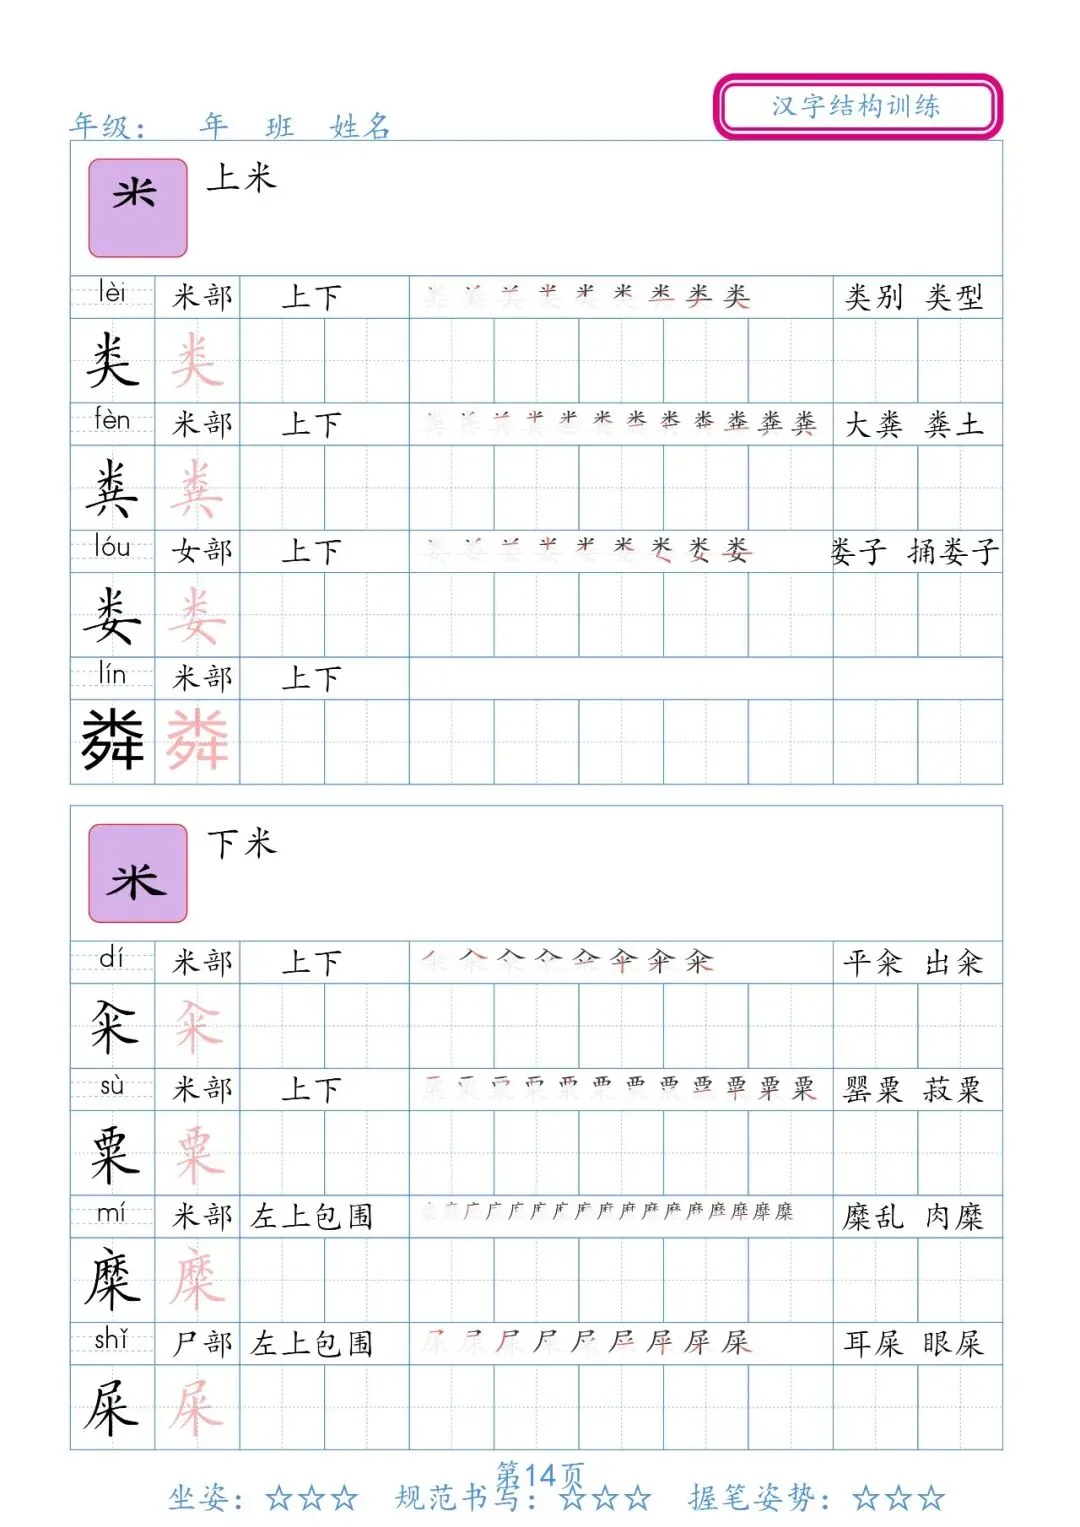 汉字结构训练
年级： 年 班 姓名
米 上米
lèi 米部 上下 类别 类型
类 类
fèn 米部 上下 大粪 粪土
粪 粪
lóu 女部 上下 娄子 捅娄子
娄 娄
lín 米部 上下
粦 粦
米 下米
dí 米部 上下 平籴 出籴
籴 籴
sù 米部 上下 罂粟 菽粟
粟 粟
mí 米部 左上包围 糜乱 肉糜
糜 糜
shǐ 尸部 左上包围 耳屎 眼屎
屎 屎
第14页
坐姿：☆☆☆ 规范书写：☆☆☆ 握笔姿势：☆☆☆